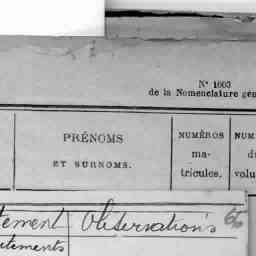 N° 1603
de la Nomenclature gén
PRÉNOMS
ET SURNOMS.
NUMÉROS
ma-
tricules.
NUM
d
volu
tement Observations
itements